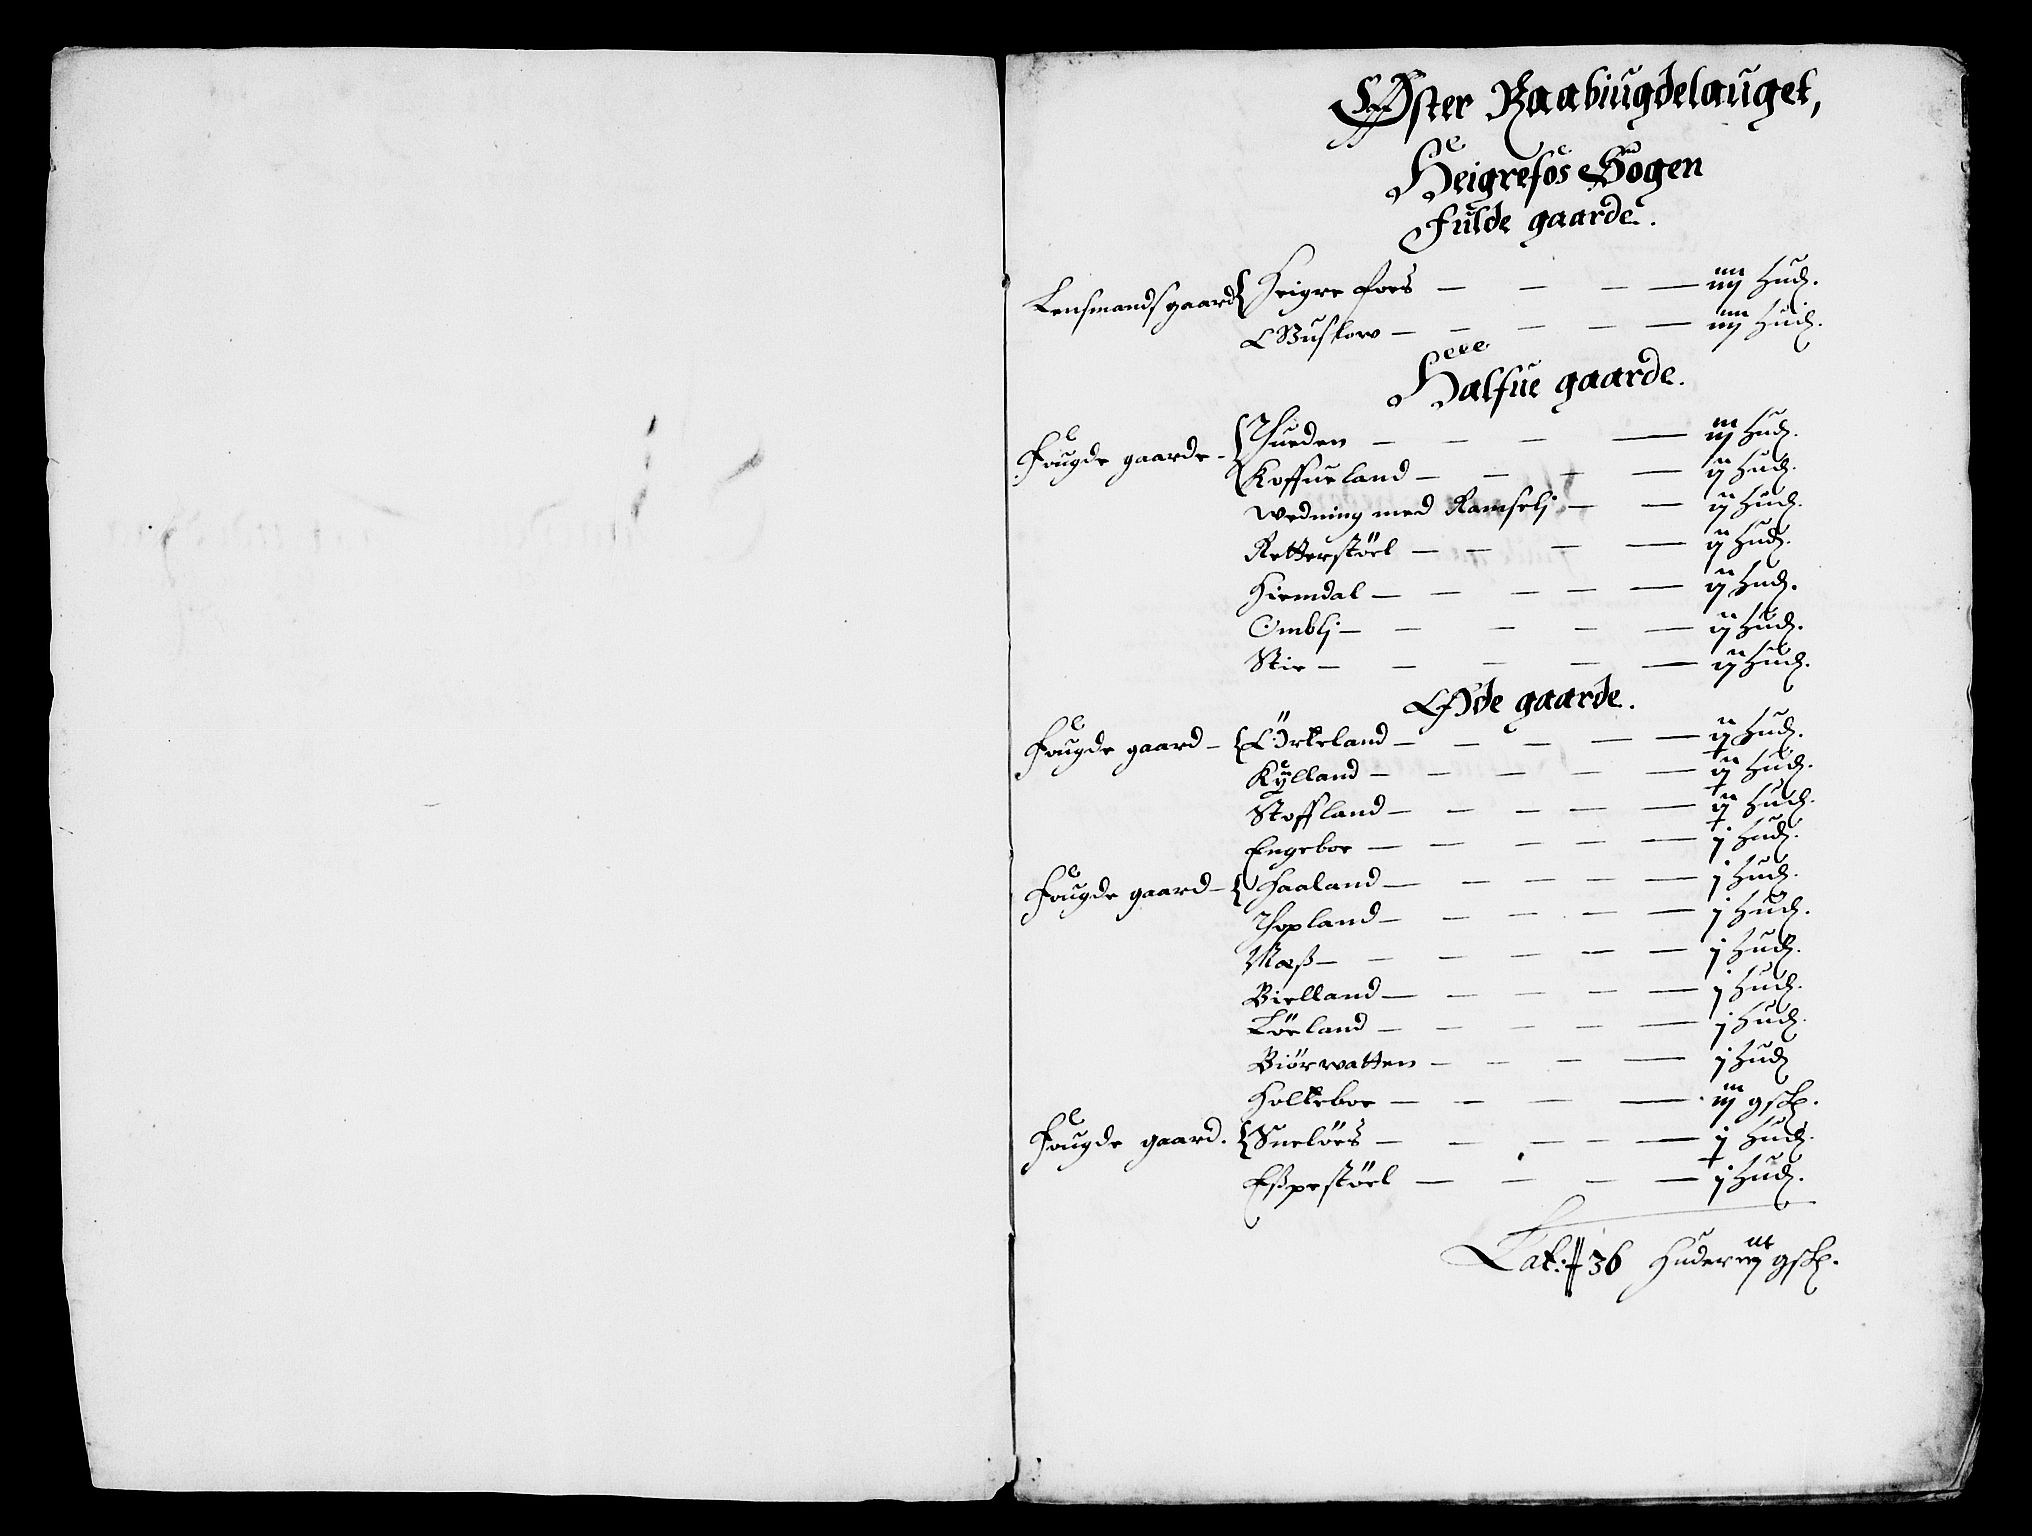 Øster Raabiugdelauget,
Heigrefos Sogen
Fulde gaarde.
Lensmandsgaard { Heigre foes — — — — iiij Hud.
Buskow — — — — — iiij Hud.
Halfue gaarde.
Fougde gaarde - { Thueden — — — — iij Hud.
Koffueland — — — — ij Hud.
Wedning med Ramselj — — ij Hud.
Retterstöel — — — — ij Hud.
Hiemdal — — — — — ij Hud.
Omblj — — — — — ij Hud.
Stie — — — — — ij Hud.
Øde gaarde.
Fougde gaard - { Örkeland — — — — — ij Hud.
Kylland — — — — — ij Hud.
Stoffland — — — — — ij Hud.
Engeboe — — — — — j Hud.
Fougde gaard - { Haaland — — — — — j Hud.
Thopland — — — — — j Hud.
Mæß — — — — — — j Hud.
Bielland — — — — — j Hud.
Löeland — — — — — j Hud.
Biörwatten — — — — j Hud
Holkeboe — — — — iij gsk.
Fougde gaard. { Sneløes — — — — — j Hud.
Eßpestöel — — — — j Hud.
Lat: 36 Huder iij gsk.